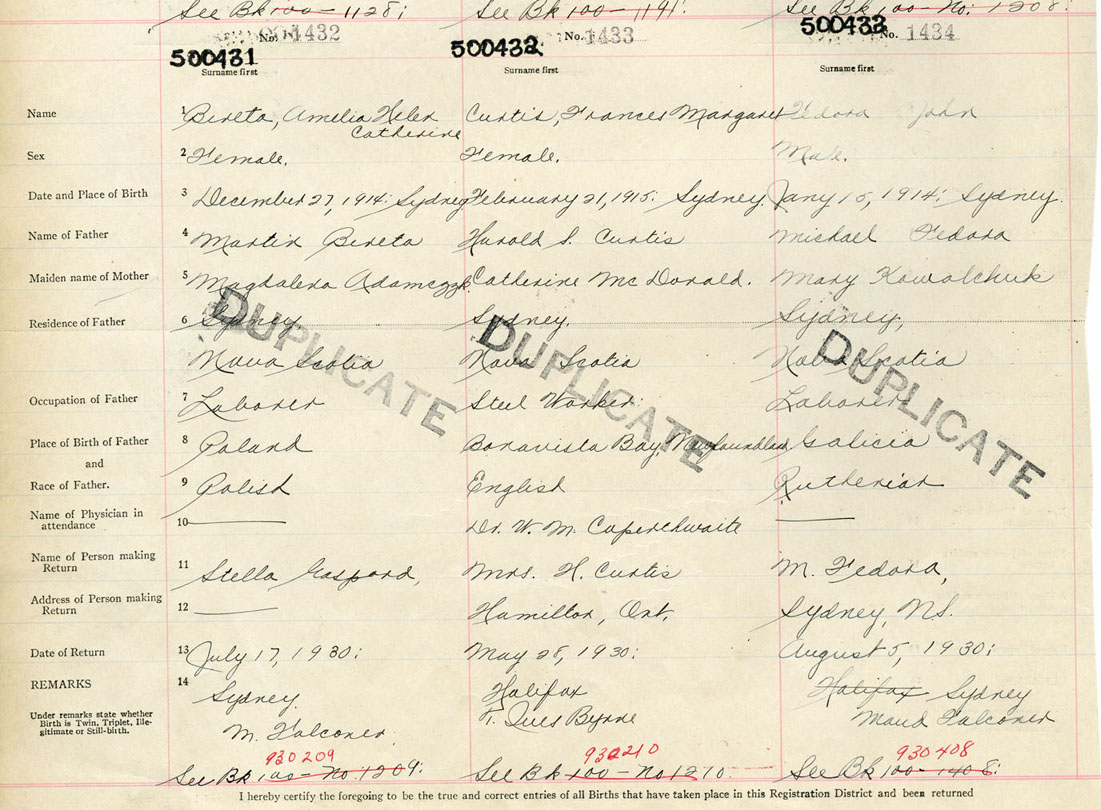 See Bk 100-1128:
See Bk 100-1191:
See Bk 100-No: 1208:
No. 1432
No. 1433
No. 1434
500431
500432
500433
Surname first
Surname first
Surname first
Name
1 Bereta, Amelia Helen Catherine
Curtis, Frances Margaret
Fedora John
Sex
2 Female.
Female.
Male.
Date and Place of Birth
3 December 27, 1914: Sydney
February 21, 1915: Sydney.
Jany 15, 1914: Sydney.
Name of Father
4 Martin Bereta
Harold S. Curtis
Michael Fedora
Maiden name of Mother
5 Magdalena Adamczyk
Catherine McDonald.
Mary Kowalchuk
Residence of Father
6 Sydney
Sydney.
Sydney,
Nova Scotia
Nova Scotia
Nova Scotia
DUPLICATE
DUPLICATE
DUPLICATE
Occupation of Father
7 Laborer
Steel Worker
Laborer
Place of Birth of Father
8 Poland
Bonavista Bay, Newfoundland
Galicia
and
Race of Father.
9 Polish
English
Ruthenian
Name of Physician in
attendance
10
Dr. W. M. Cuperthwaite
Name of Person making
Return
11 Stella Gaspard,
Mrs. H. Curtis
M. Fedora,
Address of Person making
Return
12
Hamilton, Ont.
Sydney, NS.
Date of Return
13 July 17, 1930:
May 28, 1930:
August 5, 1930:
REMARKS
14
Sydney
Halifax
Halifax Sydney
Under remarks state whether
Birth is Twin, Triplet, Ille-
gitimate or Still-birth.
M. Falconer.
Ives Byrne
Maud Falconer
930209
930210
930408
See Bk 100-No 1209:
See Bk 100-No 1210.
See Bk 100-1408:
I hereby certify the foregoing to be the true and correct entries of all Births that have taken place in this Registration District and been returned